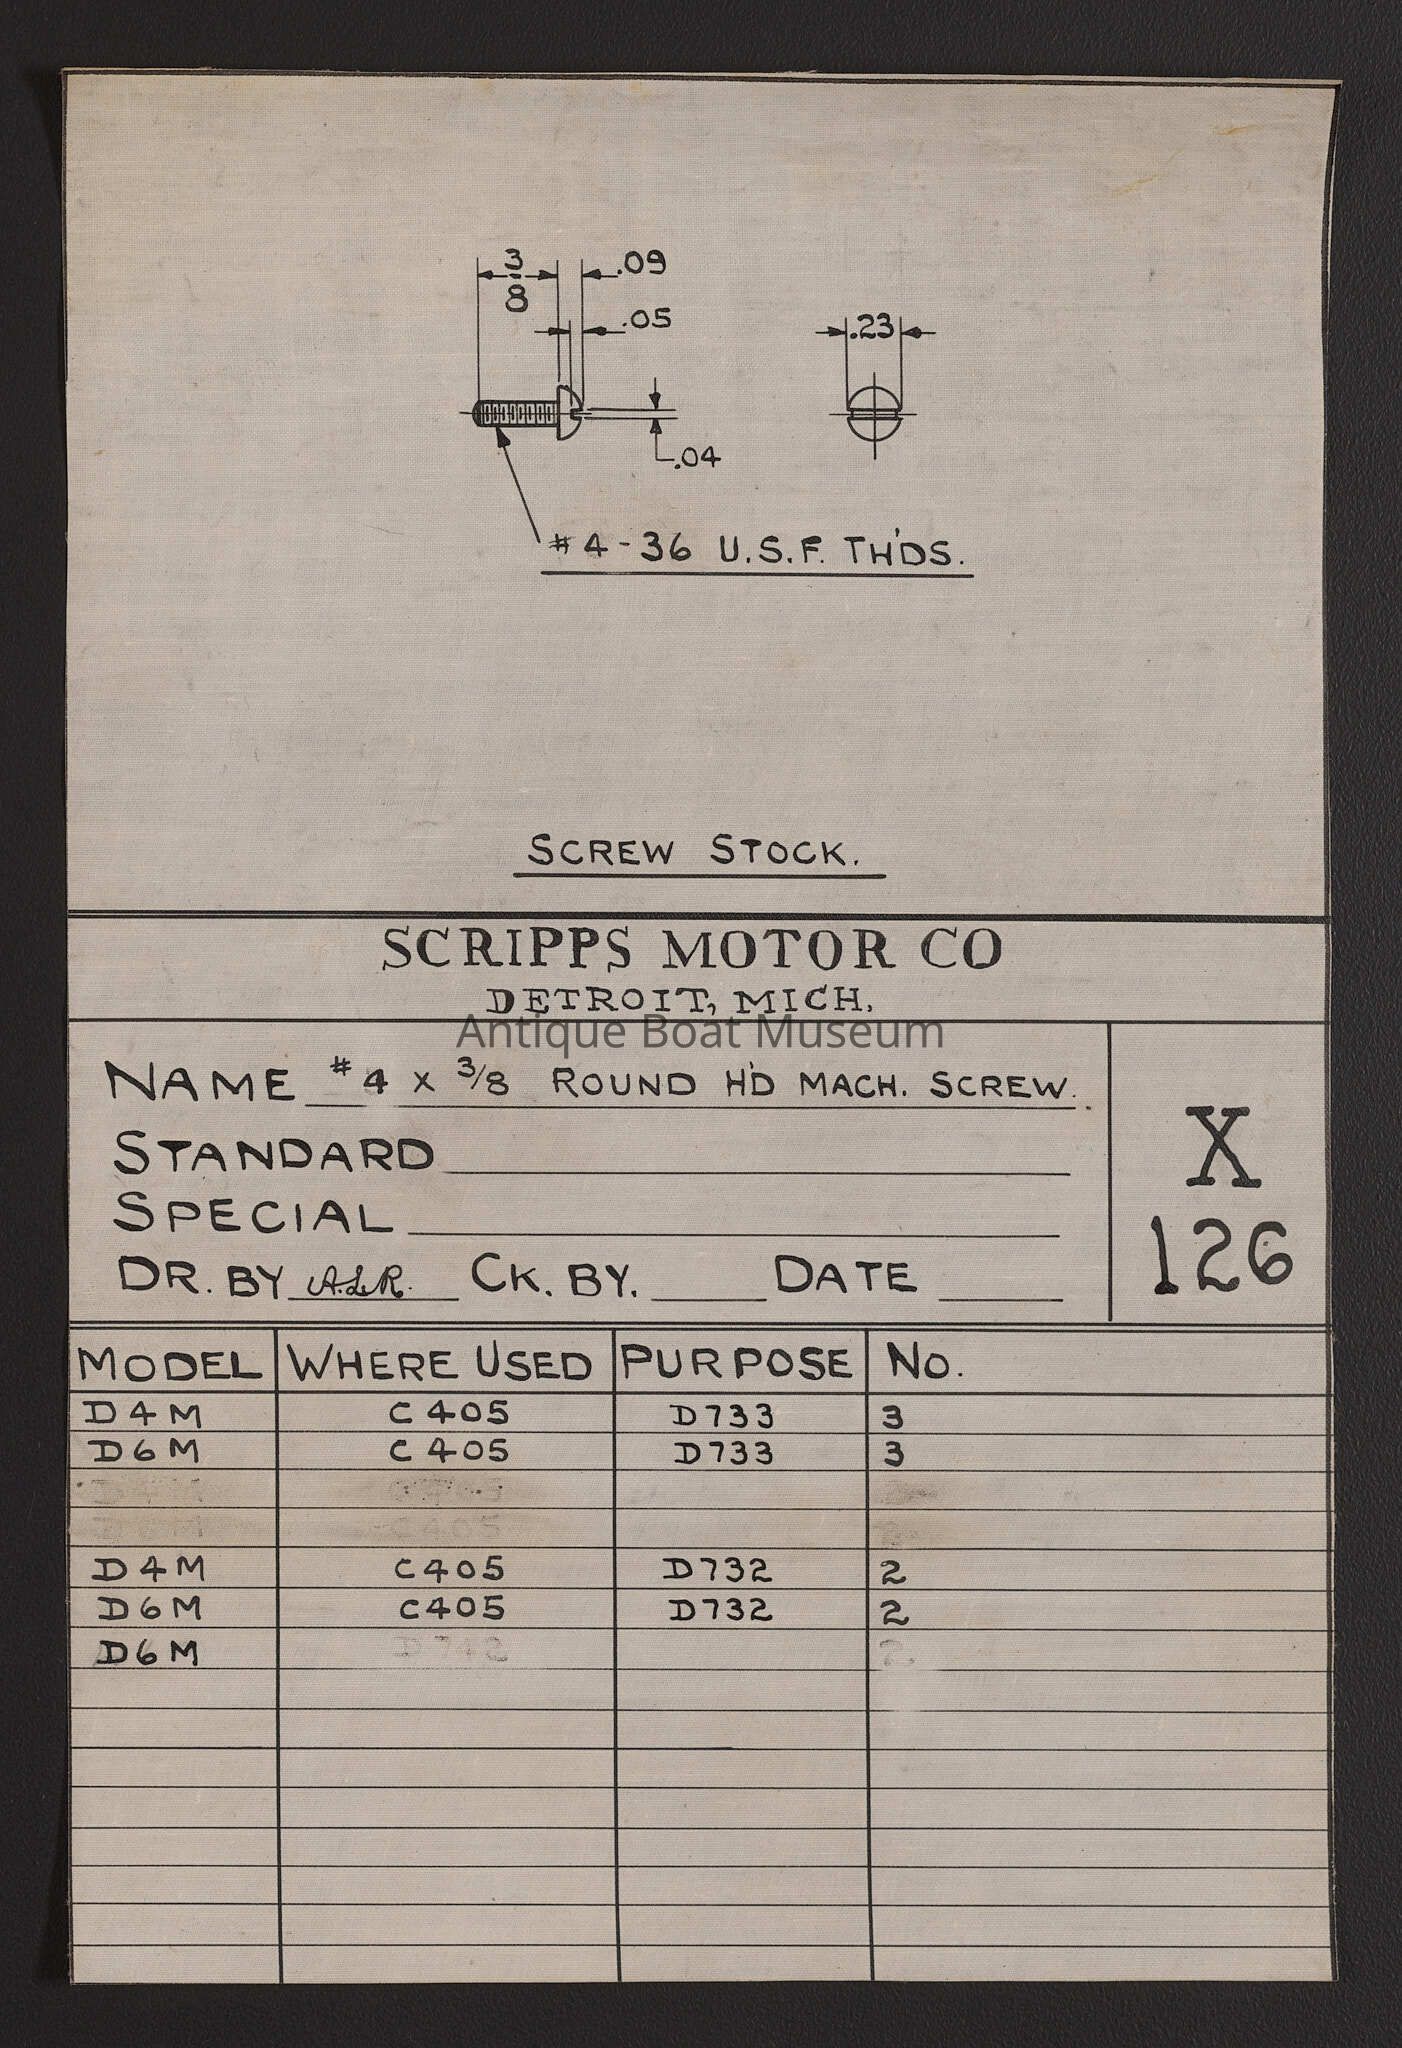 3/8
.09
.05
.23
.04
#4-36 U.S.F. TH'DS.
SCREW STOCK.
SCRIPPS MOTOR CO
DETROIT, MICH.
Antique Boat Museum
NAME #4 x 3/8 ROUND H'D MACH. SCREW.
STANDARD
SPECIAL
DR. BY A.L.R. CK. BY. DATE
X
126
MODEL WHERE USED PURPOSE NO.
D4M C405 D733 3
D6M C405 D733 3
C405
D4M C405 D732 2
D6M C405 D732 2
D6M